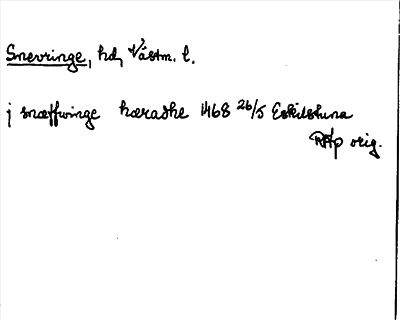 Snevringe, hd, Västm. l.
j snæffwinge hæradhe 1468 26/5 Eskilstuna
RAp orig.